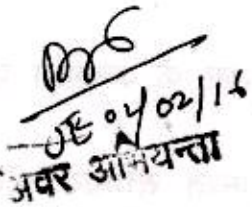 JE 04/02/16
अवर अभियन्ता